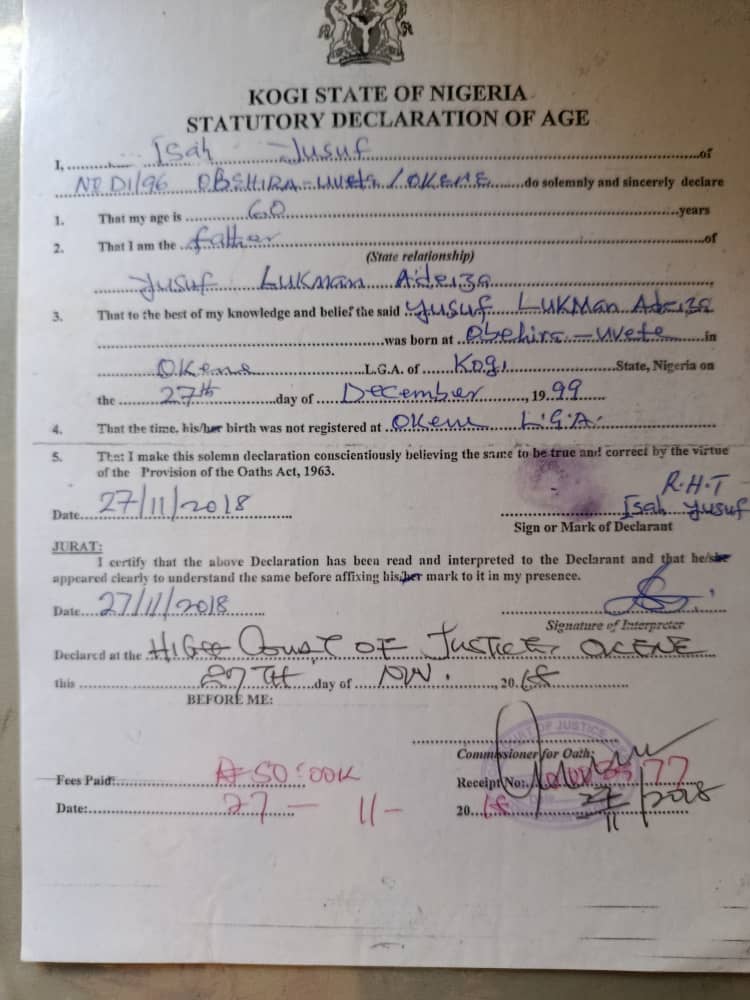 KOGI STATE OF NIGERIA
STATUTORY DECLARATION OF AGE
I, Isah Yusuf of
NO D1/96 OBEHIRA-uveta/OKENE do solemnly and sincerely declare
1. That my age is 60 years
2. That I am the father of
(State relationship)
Yusuf LUKMAN Adeiza
3. That to the best of my knowledge and belief the said Yusuf LUKMan Adeiza
was born at Obehira-uvete in
Okene L.G.A. of Kogi State, Nigeria on
the 27th day of December, 1999
4. That the time, his/her birth was not registered at Okene L.G.A.
5. That I make this solemn declaration conscientiously believing the same to be true and correct by the virtue
of the Provision of the Oaths Act, 1963.
R.H.T
Date 27/11/2018 Isah Yusuf
Sign or Mark of Declarant
JURAT:
I certify that the above Declaration has been read and interpreted to the Declarant and that he/she
appeared clearly to understand the same before affixing his/her mark to it in my presence.
Date 27/11/2018
Signature of Interpreter
Declared at the HIGH COURT OF JUSTICE, OKENE
this 27TH day of NOV., 2018
BEFORE ME:
OF JUSTICE
Commissioner for Oath:
Fees Paid: ₦50:00K Receipt No: 77
Date: 27 - 11 - 2018 27/11/2018